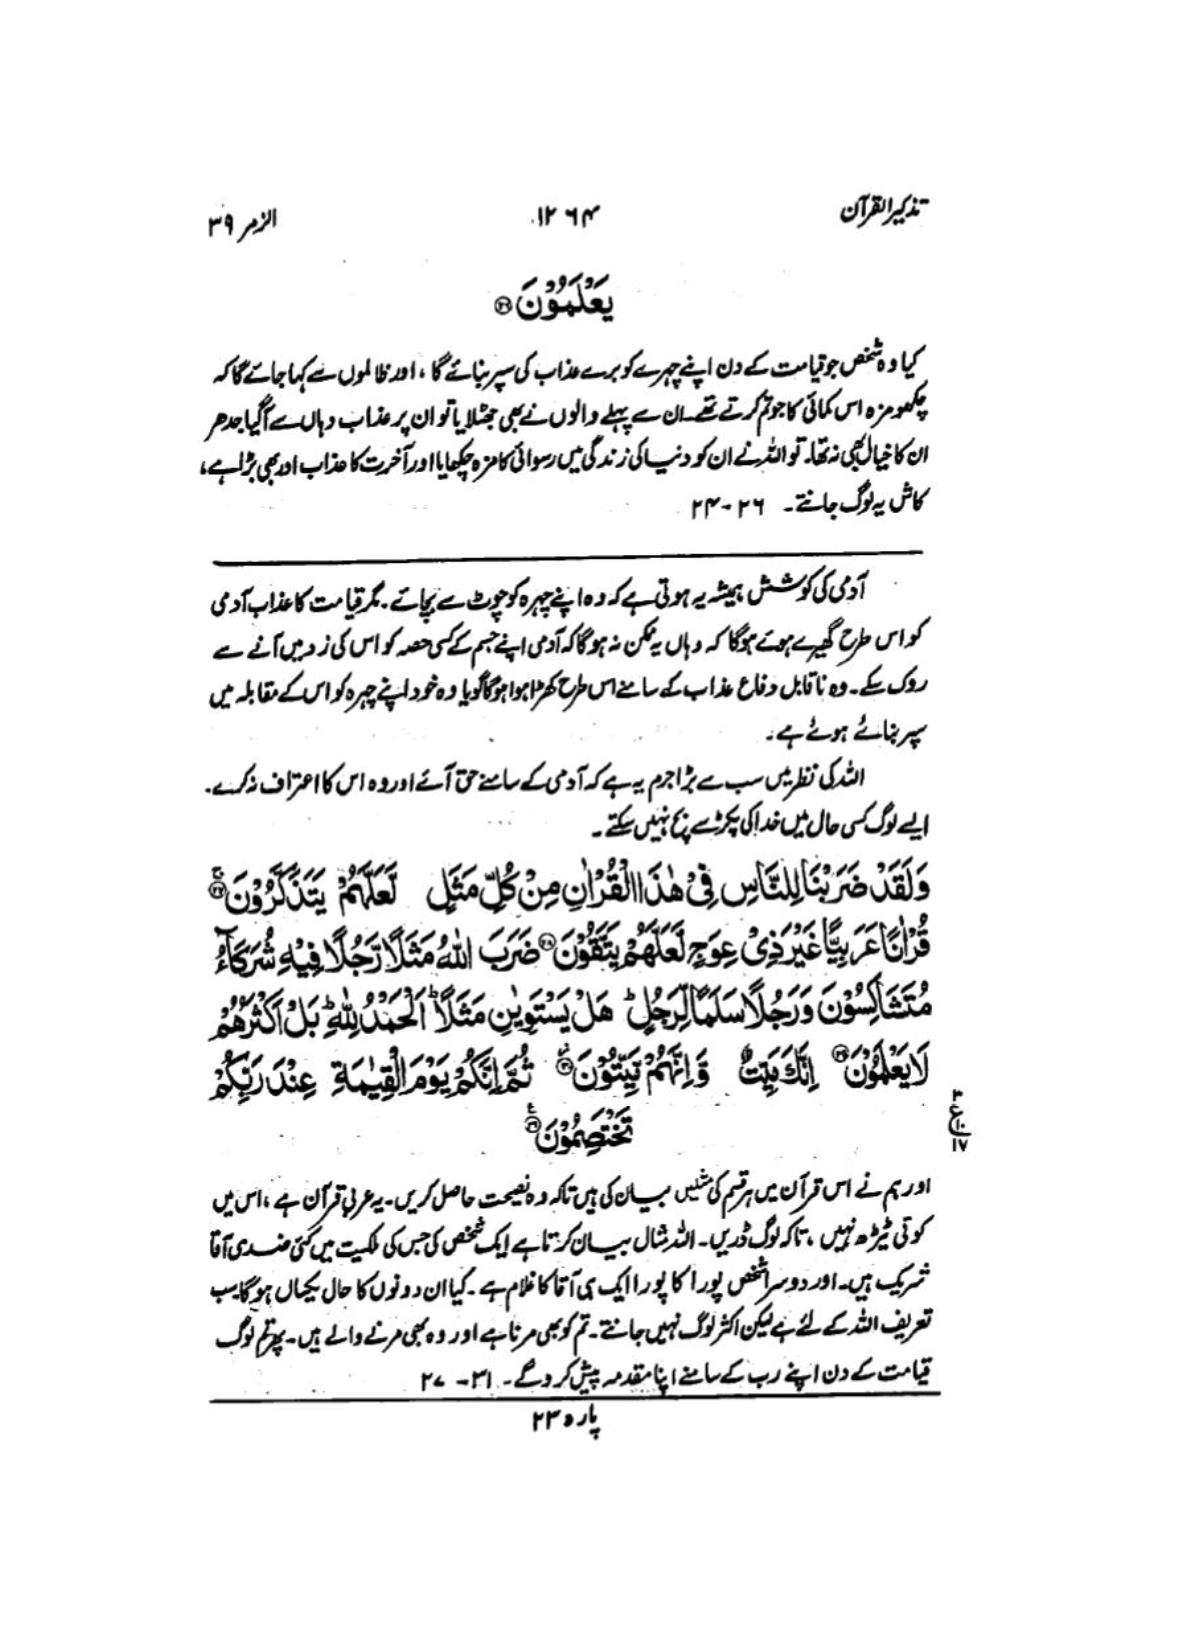 تذکیر القرآن ۱۲۶۴ الزمر ۳۹
يَعْلَمُوْنَ ۝۲۶
کیا وہ شخص جو قیامت کے دن اپنے چہرے کو برے عذاب کی سپر بنائے گا ، اور ظالموں سے کہا جائے گا کہ
چکھو مزہ اس کمائی کا جو تم کرتے تھے۔ ان سے پہلے والوں نے بھی جھٹلایا تو ان پر عذاب وہاں سے آگیا جدھر
ان کا خیال بھی نہ تھا۔ تو اللہ نے ان کو دنیا کی زندگی میں رسوائی کا مزہ چکھایا اور آخرت کا عذاب اور بھی بڑا ہے ،
کاش یہ لوگ جانتے۔ ۲۶-۲۴
آدمی کی کوشش ہمیشہ یہ ہوتی ہے کہ وہ اپنے چہرہ کو چوٹ سے بچائے۔ مگر قیامت کا عذاب آدمی
کو اس طرح گھیرے ہوئے ہوگا کہ وہاں یہ ممکن نہ ہوگا کہ آدمی اپنے جسم کے کسی حصہ کو اس کی زد میں آنے سے
روک سکے۔ وہ ناقابل دفاع عذاب کے سامنے اس طرح کھڑا ہوا ہوگا گویا وہ خود اپنے چہرہ کو اس کے مقابلہ میں
سپر بنائے ہوئے ہے۔
اللہ کی نظر میں سب سے بڑا جرم یہ ہے کہ آدمی کے سامنے حق آئے اور وہ اس کا اعتراف نہ کرے۔
ایسے لوگ کسی حال میں خدا کی پکڑ سے بچ نہیں سکتے۔
وَلَقَدْ ضَرَبْنَا لِلنَّاسِ فِيْ هٰذَا الْقُرْاٰنِ مِنْ كُلِّ مَثَلٍ لَّعَلَّهُمْ يَتَذَكَّرُوْنَ ۝۲۷
قُرْاٰنًا عَرَبِيًّا غَيْرَ ذِيْ عِوَجٍ لَّعَلَّهُمْ يَتَّقُوْنَ ۝۲۸ ضَرَبَ اللّٰهُ مَثَلًا رَّجُلًا فِيْهِ شُرَكَآءُ
مُتَشَاكِسُوْنَ وَرَجُلًا سَلَمًا لِّرَجُلٍ ؕ هَلْ يَسْتَوِيٰنِ مَثَلًا ؕ اَلْحَمْدُ لِلّٰهِ ؕ بَلْ اَكْثَرُهُمْ
لَا يَعْلَمُوْنَ ۝۲۹ اِنَّكَ مَيِّتٌ وَّاِنَّهُمْ مَّيِّتُوْنَ ۝۳۰ ثُمَّ اِنَّكُمْ يَوْمَ الْقِيٰمَةِ عِنْدَ رَبِّكُمْ
تَخْتَصِمُوْنَ ۝۳۱
۳
ع
۱۰
۱۷
اور ہم نے اس قرآن میں ہر قسم کی مثالیں بیان کی ہیں تاکہ وہ نصیحت حاصل کریں۔ یہ عربی قرآن ہے ، اس میں
کوئی ٹیڑھ نہیں ، تاکہ لوگ ڈریں۔ اللہ مثال بیان کرتا ہے ایک شخص کی جس کی ملکیت میں کئی ضدی آقا
شریک ہیں۔ اور دوسرا شخص پورا کا پورا ایک ہی آقا کا غلام ہے۔ کیا ان دونوں کا حال یکساں ہوگا۔ سب
تعریف اللہ کے لئے ہے لیکن اکثر لوگ نہیں جانتے۔ تم کو بھی مرنا ہے اور وہ بھی مرنے والے ہیں۔ پھر تم لوگ
قیامت کے دن اپنے رب کے سامنے اپنا مقدمہ پیش کروگے۔ ۳۱-۲۷
پارہ ۲۳